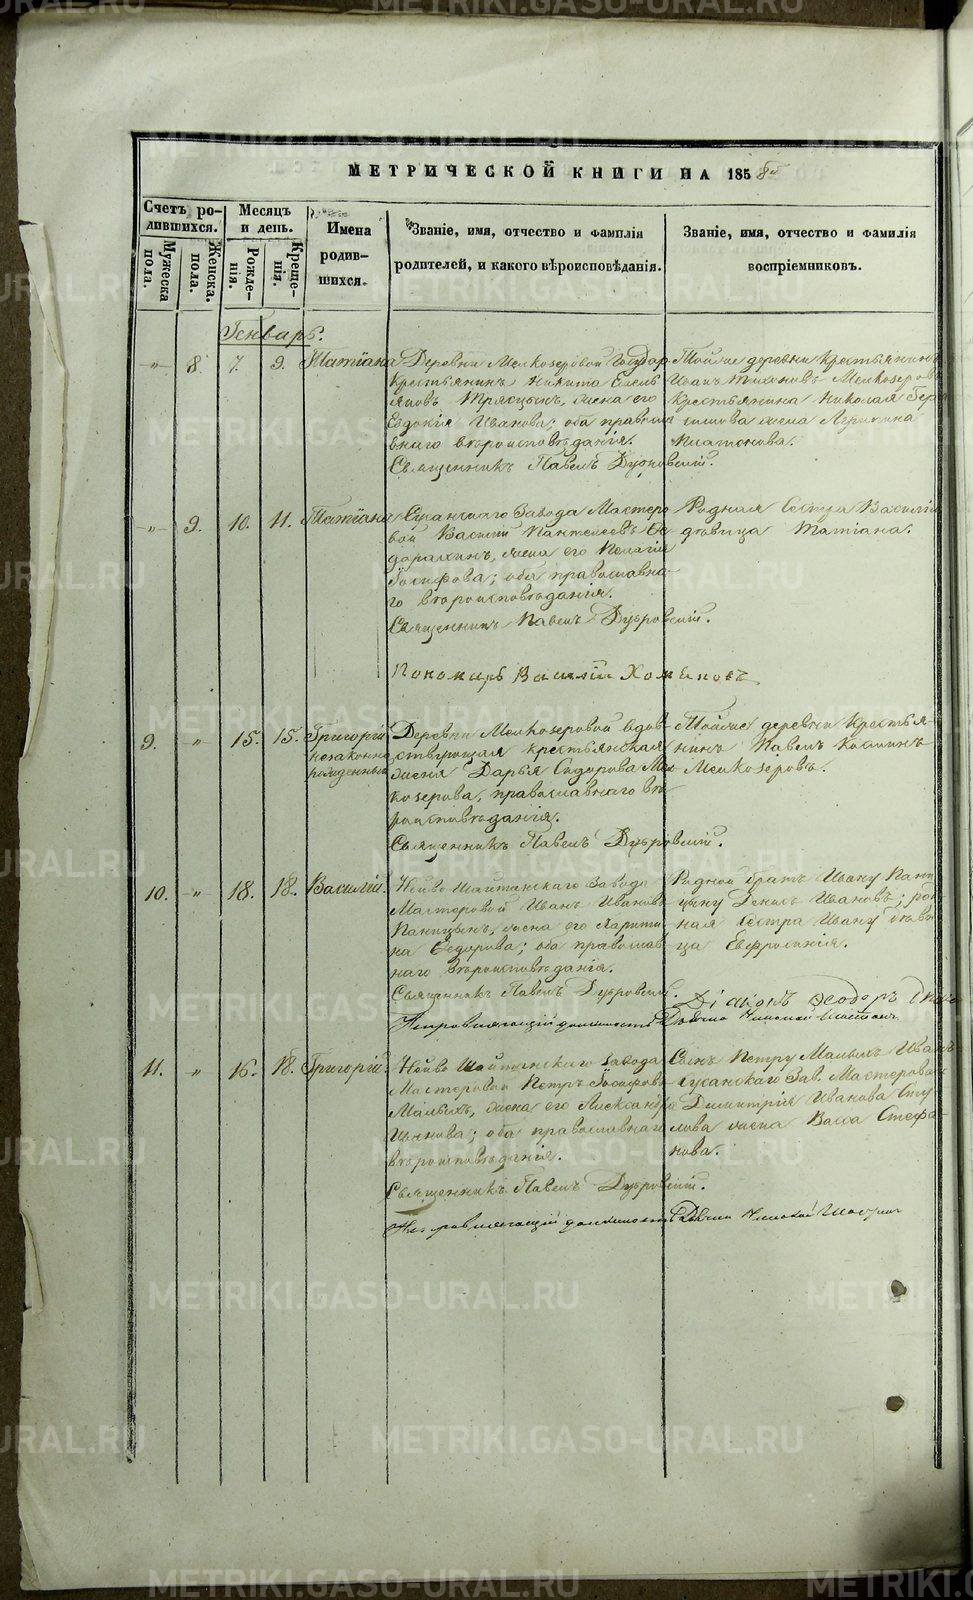 МЕТРИЧЕСКОЙ КНИГИ НА 1858й
Счетъ ро-
дившихся.
Мужеска
пола.
Женска.
пола.
Месяцъ
и день.
Рожде-
нія.
Креще-
нія.
Имена
родив-
шихся.
Званіе, имя, отчество и фамилія
родителей, и какого вѣроисповѣданія.
Званіе, имя, отчество и фамилія
воспріемниковъ.
Генварь.
" 8. 7. 9. Татіана
Деревни Мелкозеровой Государ
крестьянинъ Никита Емель
яновъ Трясцынъ, жена его
Евдокія Иванова; оба правосла
внаго вѣроисповѣданія.
Священникъ Павелъ Дубровскій.
Тойже деревни крестьянинъ
Иванъ Тихановъ Мелкозеровъ
крестьянина Николая Гера
симова жена Агрипина
Платонова.
" 9. 10. 11. Татіана
Сусанскаго Завода Мастеро
вой Василій Пантелеевъ Ѳе
жена его Пелагія
Іосифова; оба православна-
го вѣроисповѣданія.
Священникъ Павелъ Дубровскій.
Родная Сестра Василія
дѣвица Татіана.
Пономарь Василій Хоменовъ
9. " 15. 15. Григорій
незаконно
рожденный
Деревни Мелкозеровой вдов
ствующая крестьянская
жена Дарья Сидорова Мел
козерова, православнаго вѣ-
роисповѣданія.
Священникъ Павелъ Дубровскій.
Тойже деревни Крестья-
нинъ Павелъ Козминъ
Мелкозеровъ.
10. " 18. 18. Василій.
Нейво Шайтанскаго Завода
Мастеровой Иванъ Ивановъ
Паницынъ, жена его Харити
на Ѳедорова; оба православ
наго вѣроисповѣданія.
Священникъ Павелъ Дубровскій.
Родной братъ Ивану Пани
цыну Денисъ Ивановъ; род
ная сестра Ивану дѣви
ца Евфросинія.
Діаконъ Ѳеодоръ
Исправляющій должность Дьячка Николай
11. " 16. 18. Григорій.
Нейво Шайтанскаго Завода
Мастеровой Петръ Іосифовъ
Малыхъ, жена его Александра
Иванова; оба православнаго
вѣроисповѣданія.
Священникъ Павелъ Дубровскій.
Сынъ Петру Малыхъ Иванъ
Сусанскаго Зав. Мастероваго
Димитрія Иванова
жена Васса Стефа-
нова.
Исправляющій должность Дьячка Николай
METRIKI.GASO-URAL.RU